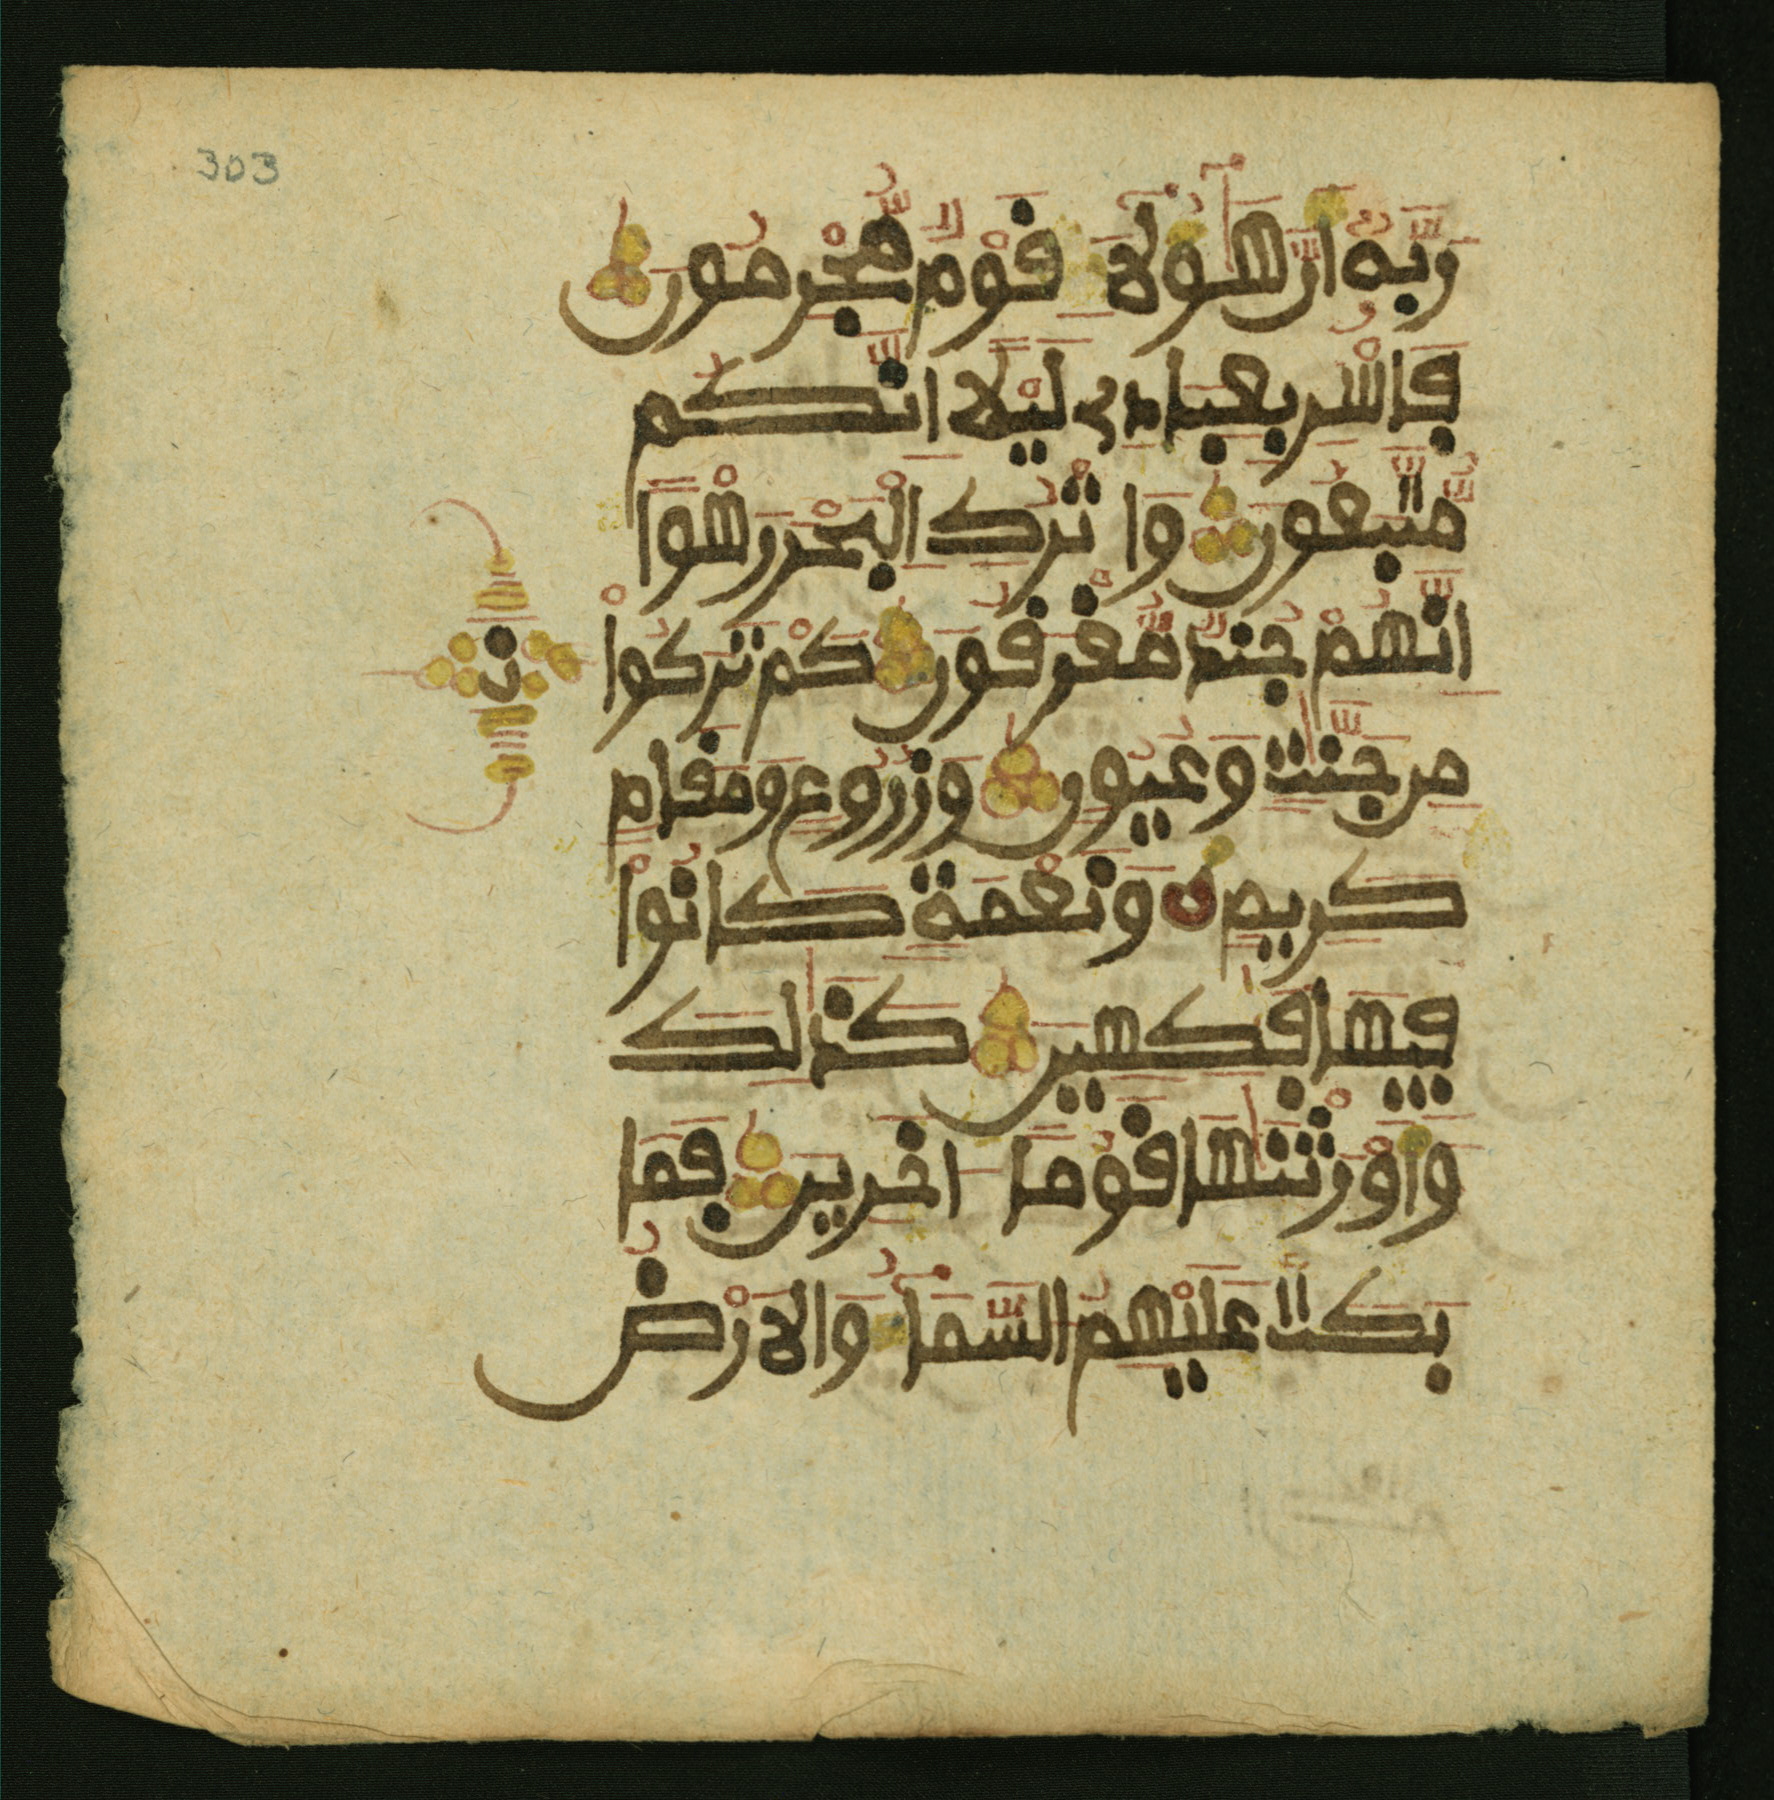 303
رَبَّهُ أَنَّ هَؤُلَاءِ قَوْمٌ مُّجْرِمُونَ
فَاسْرِ بِعِبَادِي لَيْلًا إِنَّكُم
مُّتَّبَعُونَ وَاتْرُكِ الْبَحْرَ رَهْوًا
إِنَّهُمْ جُندٌ مُّغْرَقُونَ كَمْ تَرَكُواْ
مِن جَنَّٰتٍ وَعُيُونٍ وَزُرُوعٍ وَمَقَامٍ
كَرِيمٍ ن وَنَعْمَةٍ كَانُواْ
فِيهَا فَٰكِهِينَ كَذَٰلِكَ
وَأَوْرَثْنَٰهَا قَوْمًا اخَرِينَ فَمَا
بَكَتْ عَلَيْهِمُ السَّمَآءُ وَالَارْضُ
ن